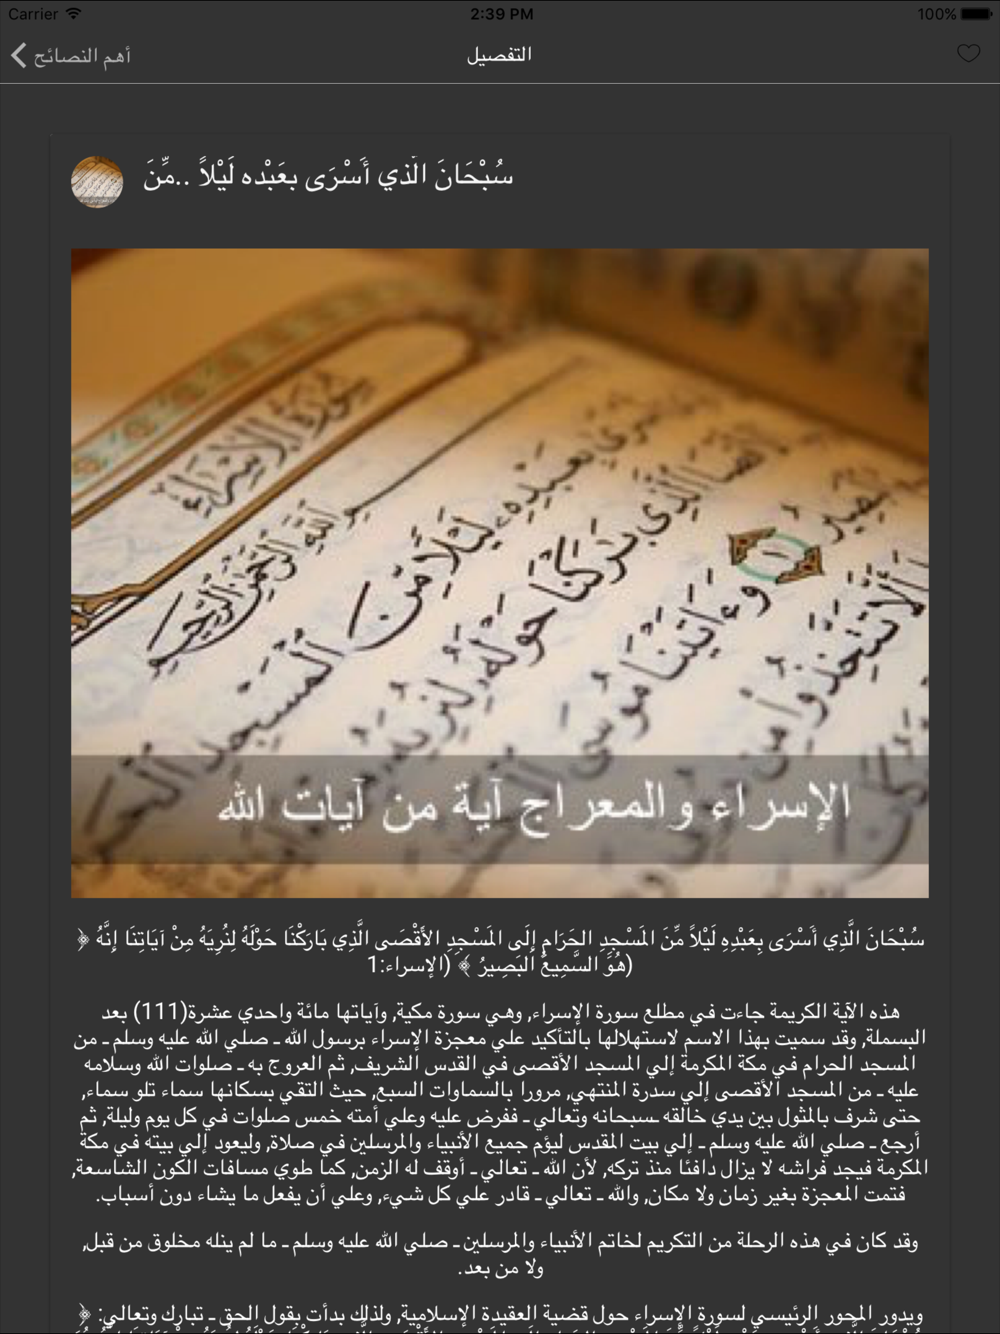 Carrier
2:39 PM
100%
أهم النصائح
التفصيل
سُبْحَانَ الَّذي أَسْرَى بعَبْده لَيْلاً ..مِّنَ
سُورَةُ الإِسْرَاءِ
بِسْمِ اللَّهِ الرَّحْمَٰنِ الرَّحِيمِ
بِعَبْدِهِ لَيْلًا مِّنَ الْمَسْجِدِ الْحَرَامِ
الَّذِي بَارَكْنَا حَوْلَهُ لِنُرِيَهُ
الْبَصِيرُ ١ وَءَاتَيْنَا مُوسَى
أَلَّا تَتَّخِذُوا مِن
الإسراء والمعراج آية من آيات الله
سُبْحَانَ الَّذِي أَسْرَى بِعَبْدِهِ لَيْلاً مِّنَ المَسْجِدِ الحَرَامِ إِلَى المَسْجِدِ الأَقْصَى الَّذِي بَارَكْنَا حَوْلَهُ لِنُرِيَهُ مِنْ آيَاتِنَا إِنَّهُ ﴿
هُوَ السَّمِيعُ البَصِيرُ ﴾ (الإسراء:1)
هذه الآية الكريمة جاءت في مطلع سورة الإسراء, وهي سورة مكية, وآياتها مائة واحدي عشرة(111) بعد
البسملة, وقد سميت بهذا الاسم لاستهلالها بالتأكيد علي معجزة الإسراء برسول الله ـ صلي الله عليه وسلم ـ من
المسجد الحرام في مكة المكرمة إلي المسجد الأقصى في القدس الشريف, ثم العروج به ـ صلوات الله وسلامه
عليه ـ من المسجد الأقصى إلي سدرة المنتهي, مرورا بالسماوات السبع, حيث التقي بسكانها سماء تلو سماء,
حتى شرف بالمثول بين يدي خالقه ـسبحانه وتعالي ـ ففرض عليه وعلي أمته خمس صلوات في كل يوم وليلة, ثم
أرجع ـ صلي الله عليه وسلم ـ إلي بيت المقدس ليؤم جميع الأنبياء والمرسلين في صلاة, وليعود إلي بيته في مكة
المكرمة فيجد فراشه لا يزال دافئا منذ تركه, لأن الله ـ تعالي ـ أوقف له الزمن, كما طوي مسافات الكون الشاسعة,
فتمت المعجزة بغير زمان ولا مكان, والله ـ تعالي ـ قادر علي كل شيء, وعلي أن يفعل ما يشاء دون أسباب.
وقد كان في هذه الرحلة من التكريم لخاتم الأنبياء والمرسلين ـ صلي الله عليه وسلم ـ ما لم ينله مخلوق من قبل,
ولا من بعد.
ويدور المحور الرئيسي لسورة الإسراء حول قضية العقيدة الإسلامية, ولذلك بدأت بقول الحق ـ تبارك وتعالي: ﴿